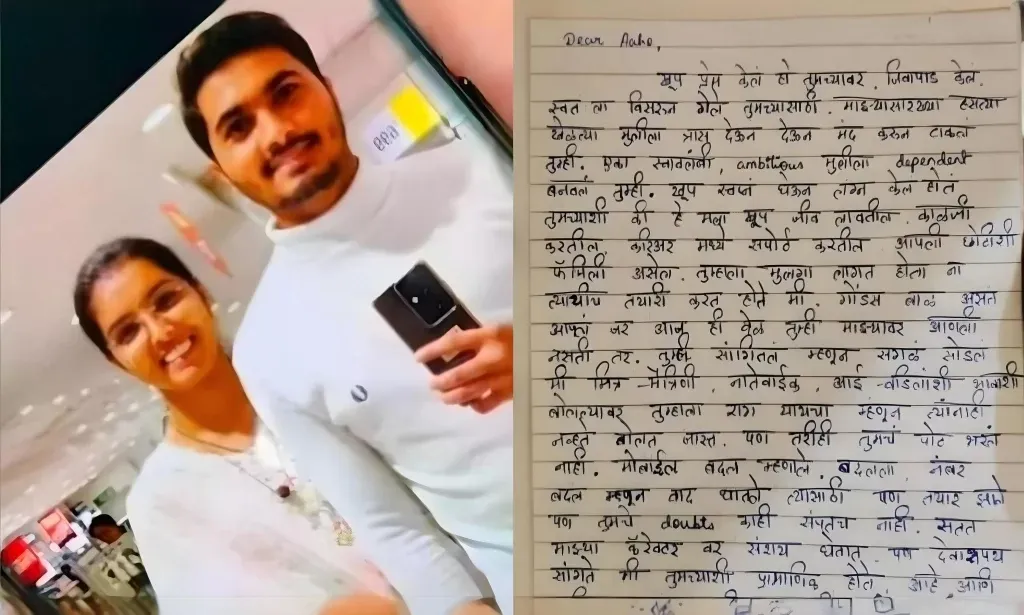 Dear Aaho,
खूप प्रेम केलं हो तुमच्यावर. जिवापाड केलं.
स्वत ला विसरुन गेले तुमच्यासाठी. माझ्यासारख्या हसत्या
खेळत्या मुलीला त्रास देऊन देऊन मंद करुन टाकलं
तुम्ही. एका स्वावलंबी, ambitious मुलीला dependent
बनवलं तुम्ही. खूप स्वप्नं घेऊन लग्न केलं होतं
तुमच्याशी की हे मला खूप जीव लावतील. काळजी
करतील, करिअर मध्ये सपोर्ट करतील. आपली छोटीशी
फॅमिली असेल. तुम्हाला मुलगा लागत होता ना
त्याचीच तयारी करत होते मी. गोंडस बाळ असतं
आपलं जर आज ही वेळ तुम्ही माझ्यावर आणली
नसती तर. तुम्ही सांगितलं म्हणून सगळं सोडलं
मी मित्र-मैत्रिणी, नातेवाईक, आई-वडिलांशी भावाशी
बोलल्यावर तुम्हाला राग यायचा म्हणून त्यांनाही
नव्हते बोलत जास्त. पण तरीही तुमचं पोट भरलं
नाही. मोबाईल बदल म्हणाले, बदलला, नंबर
बदल म्हणून वाद घातले त्यासाठी पण तयार झाले
पण तुमचे doubts काही संपतच नाही. सतत
माझ्या कॅरेक्टर वर संशय घेतात. पण देवाशपथ
सांगते मी तुमच्याशी प्रामाणिक होते, आहे आणि